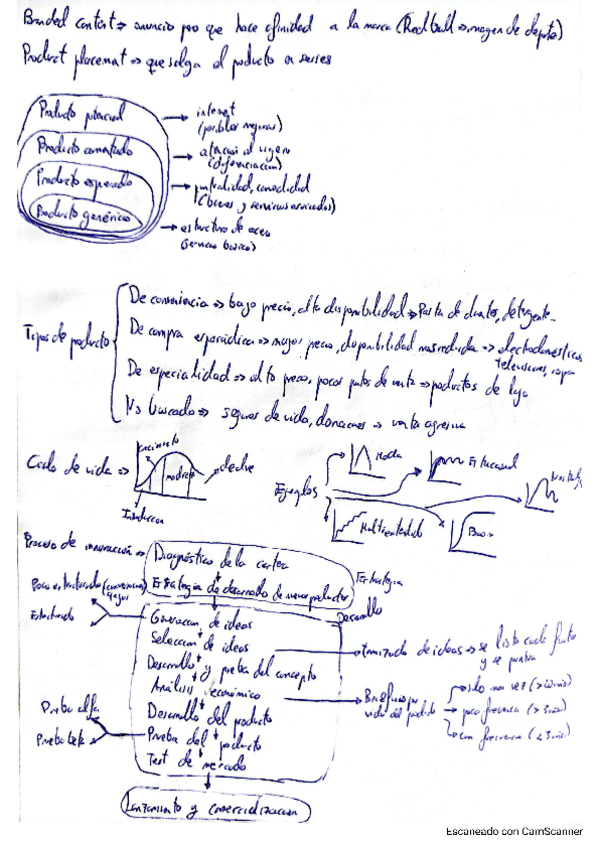 Branded content => anuncio pero que hace afinidad a la marca (Red Bull => imagen de deporte)
Product placement => que salga el producto en series
Producto potencial → internet
(posibles mejoras)
Producto aumentado → atención al viajero
(diferenciación)
Producto esperado → puntualidad, comodidad
(bienes y servicios asociados)
Producto genérico → estructura de aceso
(servicio básico)
Tipos de producto
De conveniencia => bajo precio, alta disponibilidad => Pasta de dientes, detergente...
De compra esporádica => mayor precio, disponibilidad mas reducida => electrodomésticos,
televisiones, ropa
De especialidad => alto precio, pocos puntos de venta => productos de lujo
No buscado => seguros de vida, donaciones => venta agresiva
Ciclo de vida =>
Crecimiento
madurez
declive
Introduccion
Ejemplos
Moda
Estacional
Nostalgia
Multientendido
Boom
Proceso de innovación =>
Diagnóstico de la cartera
Estrategia de desarrollo de nuevos productos
Estrategia
Desarollo
Poco estructurado
Estructurado
Generacion de ideas
Seleccion de ideas → tamizado de ideas => se lista cada factor
y se puntua
Desarrollo y prueba del concepto
Análisis económico → Beneficio por
vida del producto
solo una vez
poca frecuencia
con frecuencia
Desarrollo del producto
Prueba alfa
Prueba beta
Prueba del producto
Test de mercado
Lanzamiento y comercialización
Escaneado con CamScanner